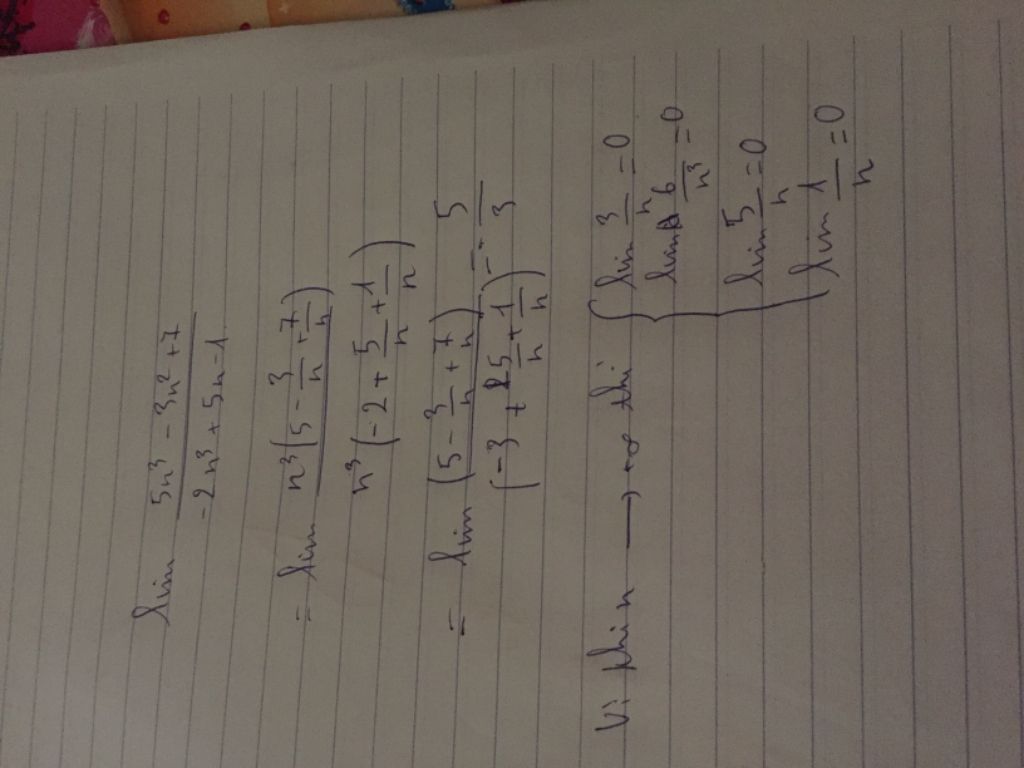 lim (5n³ - 3n² + 7)/(-2n³ + 5n - 1)
= lim n³(5 - 3/n + 7/n)/n³(-2 + 5/n + 1/n)
= lim (5 - 3/n + 7/n)/(-3 + 5/n + 1/n) = - 5/3
Vì khi n → +∞ thì { lim 3/n = 0
lim 6/n³ = 0
lim 5/n = 0
lim 1/n = 0